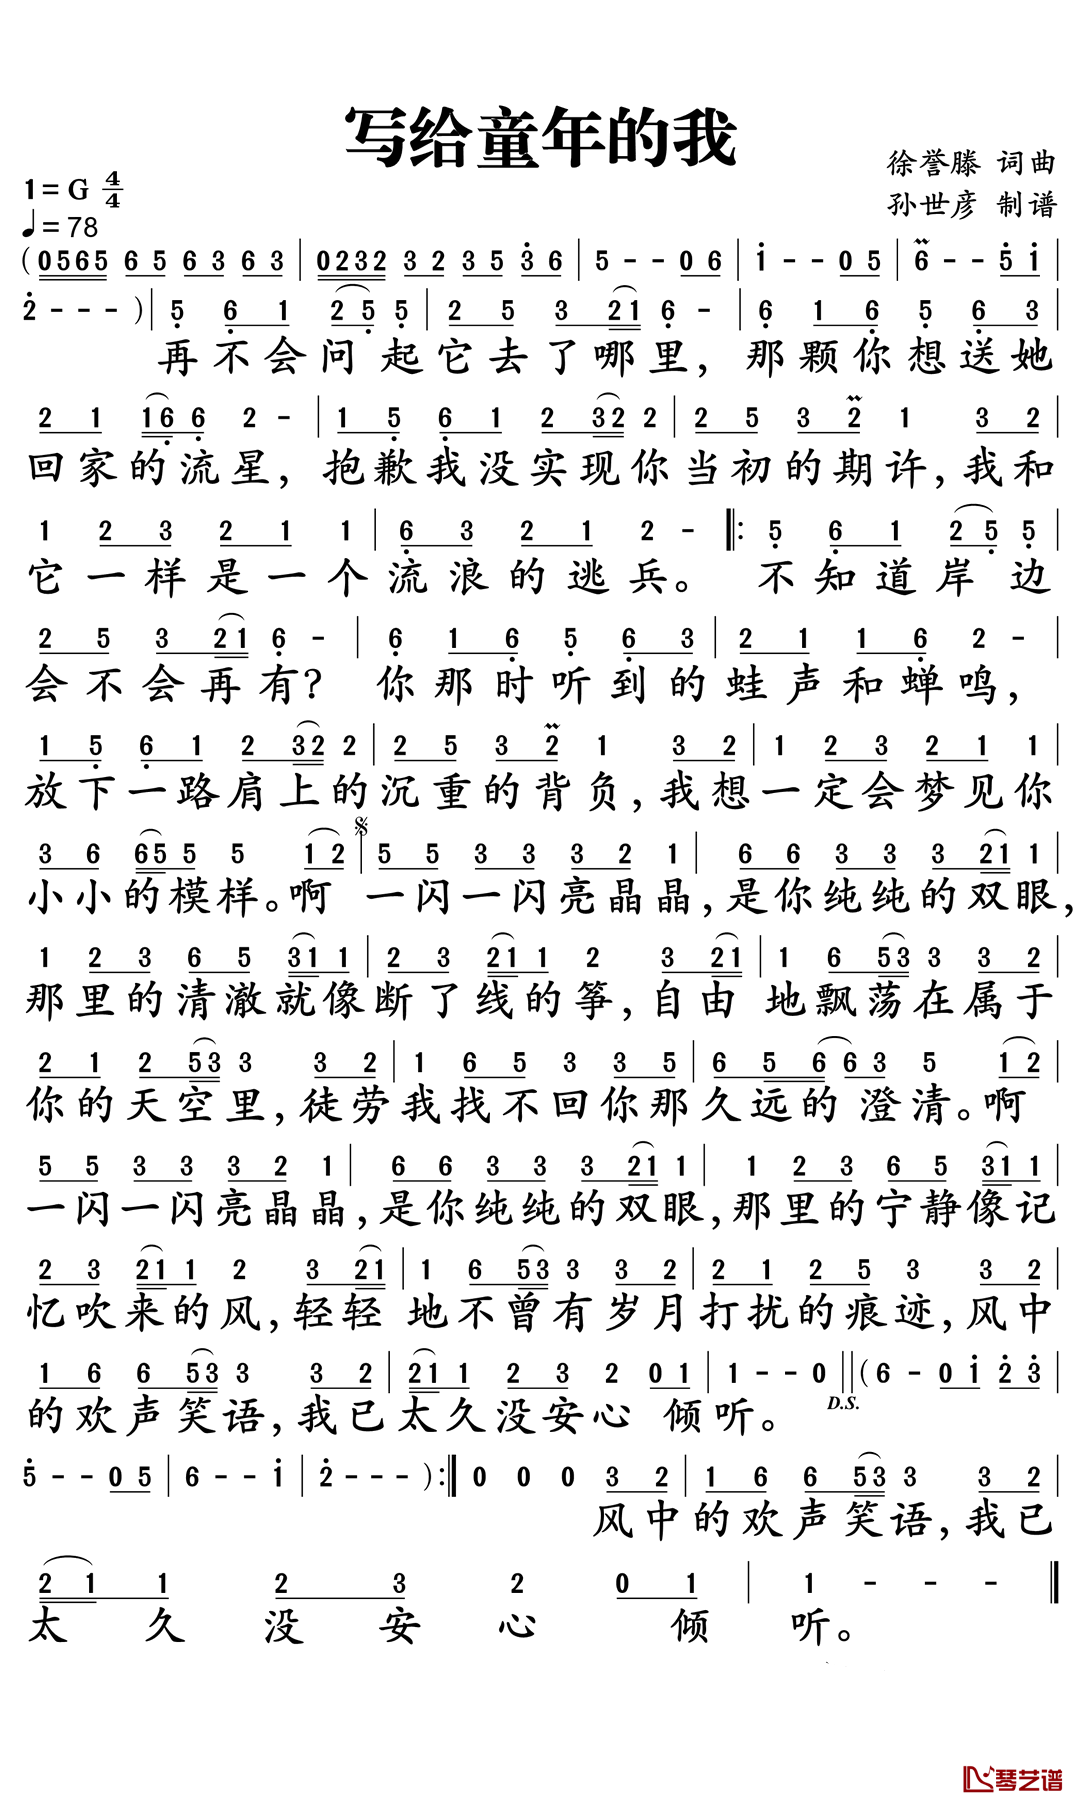 写给童年的我
徐誉滕 词曲
1=G 4/4
孙世彦 制谱
♩=78
(0565 65 63 63 | 0232 32 35 36 | 5 - - 06 | 1 - - 05 | 6 - - 51 |
2 - - - ) | 5 61 25 5 | 25 321 6 - | 6 16 5 63 |
再不会问起它去了哪里，那颗你想送她
21 166 2 - | 15 61 2322 | 25 32 1 32 |
回家的流星，抱歉我没实现你当初的期许，我和
1 23 21 1 | 63 21 2 - ‖: 5 61 25 5 |
它一样是一个流浪的逃兵。 不知道岸边
25 321 6 - | 6 16 5 63 | 21 16 2 - |
会不会再有？ 你那时听到的蛙声和蝉鸣，
15 61 2322 | 25 32 1 32 | 1 23 211 |
放下一路肩上的沉重的背负，我想一定会梦见你
36 655 5 12 | 𝄋 55 33 32 1 | 66 33 3211 |
小小的模样。啊 一闪一闪亮晶晶，是你纯纯的双眼，
1 23 65 311 | 23 211 2 321 | 1 653 3 32 |
那里的清澈就像断了线的筝，自由 地飘荡在属于
21 253 3 32 | 1 65 3 35 | 656 63 5 12 |
你的天空里，徒劳我找不回你那久远的 澄清。啊
55 33 32 1 | 66 33 3211 | 1 23 65 311 |
一闪一闪亮晶晶，是你纯纯的双眼，那里的宁静像记
23 211 2 321 | 1 653 3 32 | 21 25 3 32 |
忆吹来的风，轻轻 地不曾有岁月打扰的痕迹，风中
16 653 3 32 | 211 23 2 01 | 1 - - 0 ‖ (6 - 01 23 |
的欢声笑语，我已太久没安心 倾听。
D.S.
5 - - 05 | 6 - - 1 | 2 - - - ) :‖ 0 0 0 32 | 16 653 3 32 |
风中的欢声笑语，我已
21 1 23 2 01 | 1 - - - ‖
太久没安心 倾 听。
琴艺谱